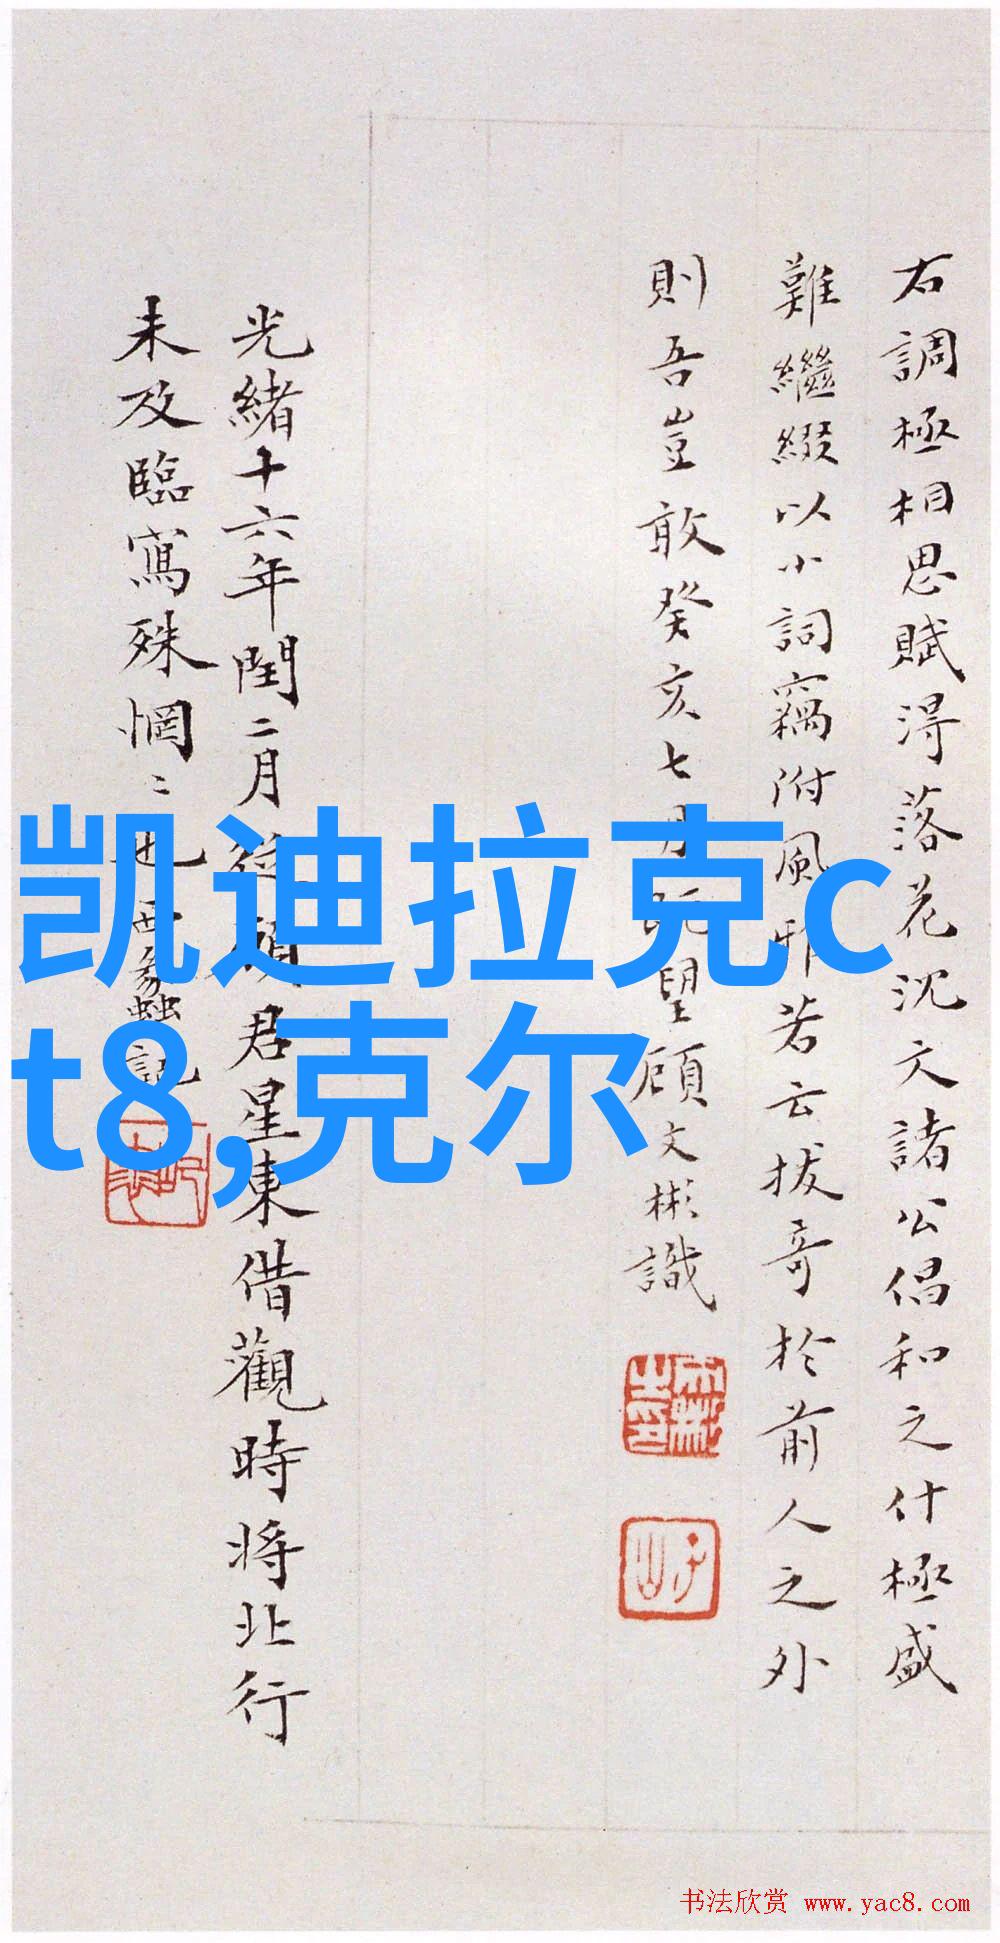 右調極相思賦得落花沈文諸公倡和之什極盛
難繼綴以小詞竊附風邪若云拔奇於前人之外
則吾豈敢癸亥七月既望顧文彬識
光緒十六年閏二月從顧君星東借觀時將北行
未及臨寫殊惘二也西蠡記
凯迪拉克c
t8,克尔
书法欣赏 www.yac8.com